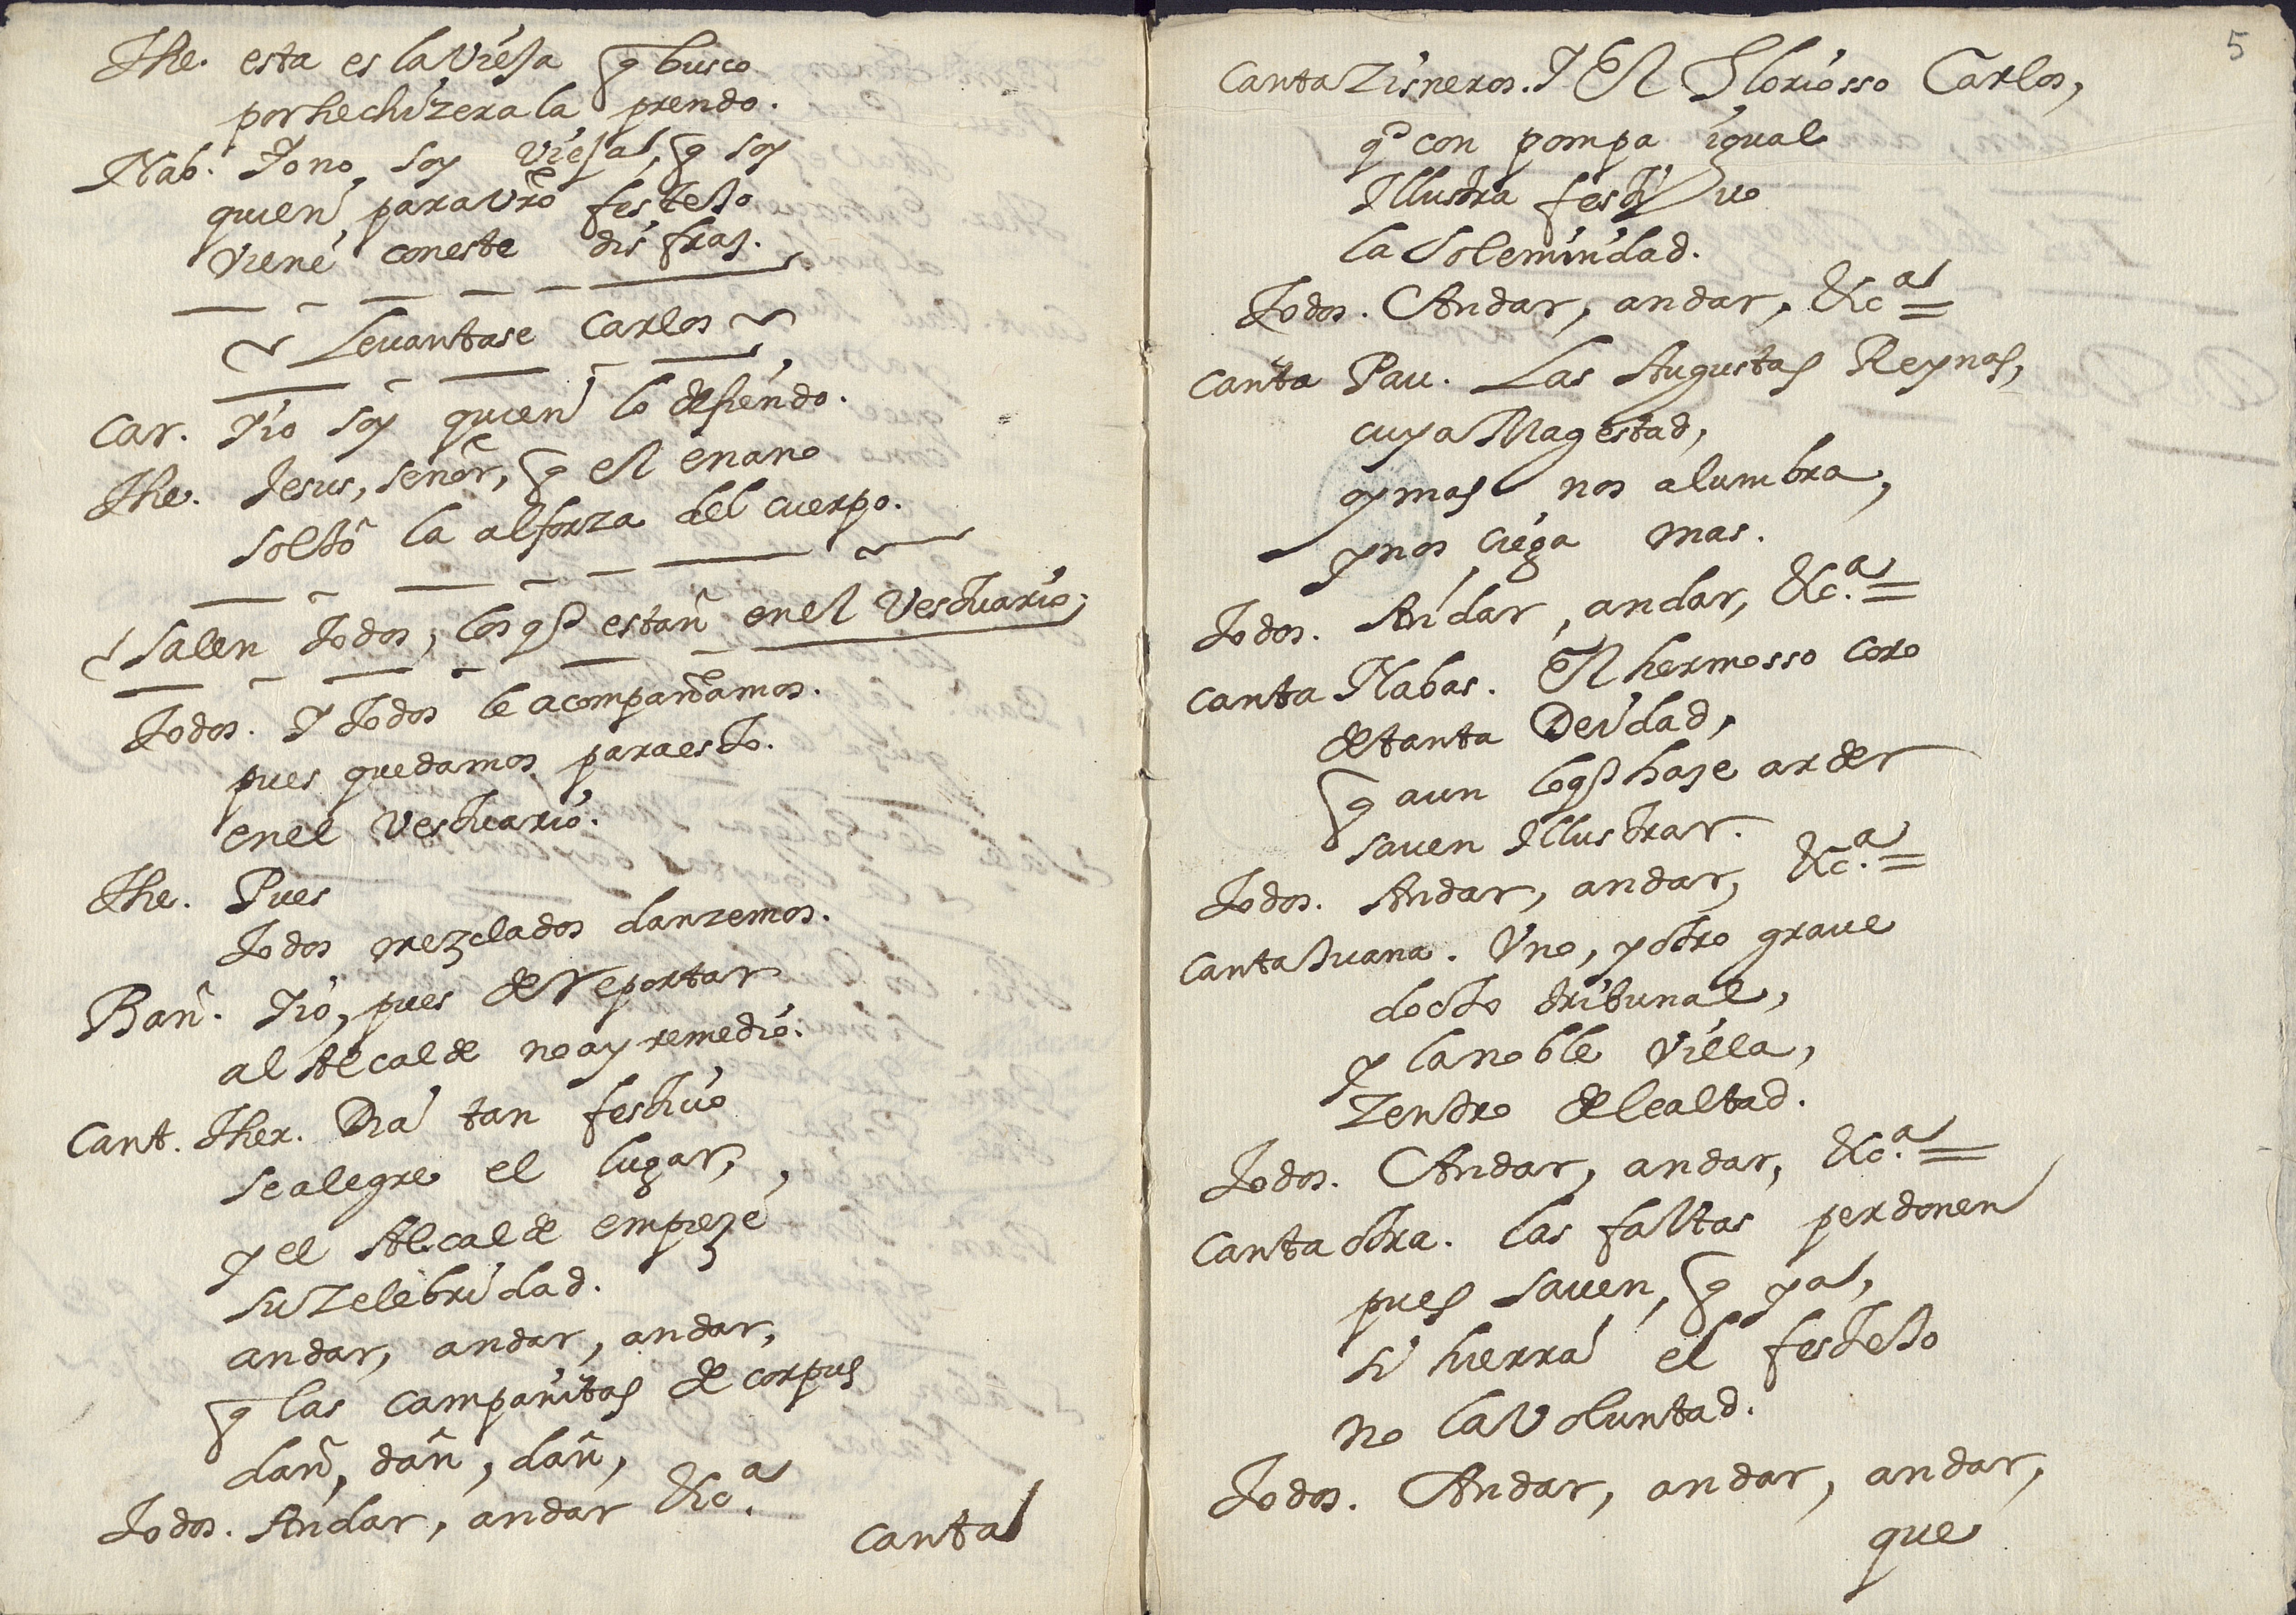 The. esta es la Vieja q̃ busco
por hechizera la prendo.
Nab. Yo no soy vieja, q̃ soy
quien para vr̃o festejo
viene con este disfraz.
Levantase Carlos
Car. Yio soy quien lo defiendo.
The. Jesus, señor, q̃ el enano
soltô la alforza del cuerpo.
Salen todos, los qe estan en el Vestuario,
Todos. Y todos le acompañamos.
pues quedamos para esto.
en el Vestuario.
The. Pues
todos mezclados danzemos.
Bañ. Yio, pues de reportar
al Alcalde no ay remedio.
Cant. Ther. Dia tan festivo
se alegre el lugar,
y el Alcalde empieze
su Zelebridad.
andar, andar, andar,
q̃ las campanitas de corpus
dan, dan, dan,
Todos. Andar, andar &cª.
Canta
5
Canta Zisneros. Y El Gloriosso Carlos,
qe con pompa igual
Illustra festivo
la Solemnidad.
Todos. Andar, andar, &cª =
Canta Pau. Las Augustas Reynas,
cuya Magestad,
ay mas nos alumbra,
y nos ciega mas.
Todos. Andar, andar, &c.ª =
Canta Nabas. El hermosso coro
de tanta Deidad,
q̃ aun lo qe haze arder
saven Illustrar.
Todos. Andar, andar, &c.ª =
Canta Juana. Uno, y otro grave
docto tribunal,
y la noble Villa,
Zentro de lealtad.
Todos. Andar, andar, &c.ª =
Canta otra. las faltas perdonen
pues saven, q̃ ya,
si hierra el festejo
no la Voluntad.
Todos. Andar, andar, andar,
que